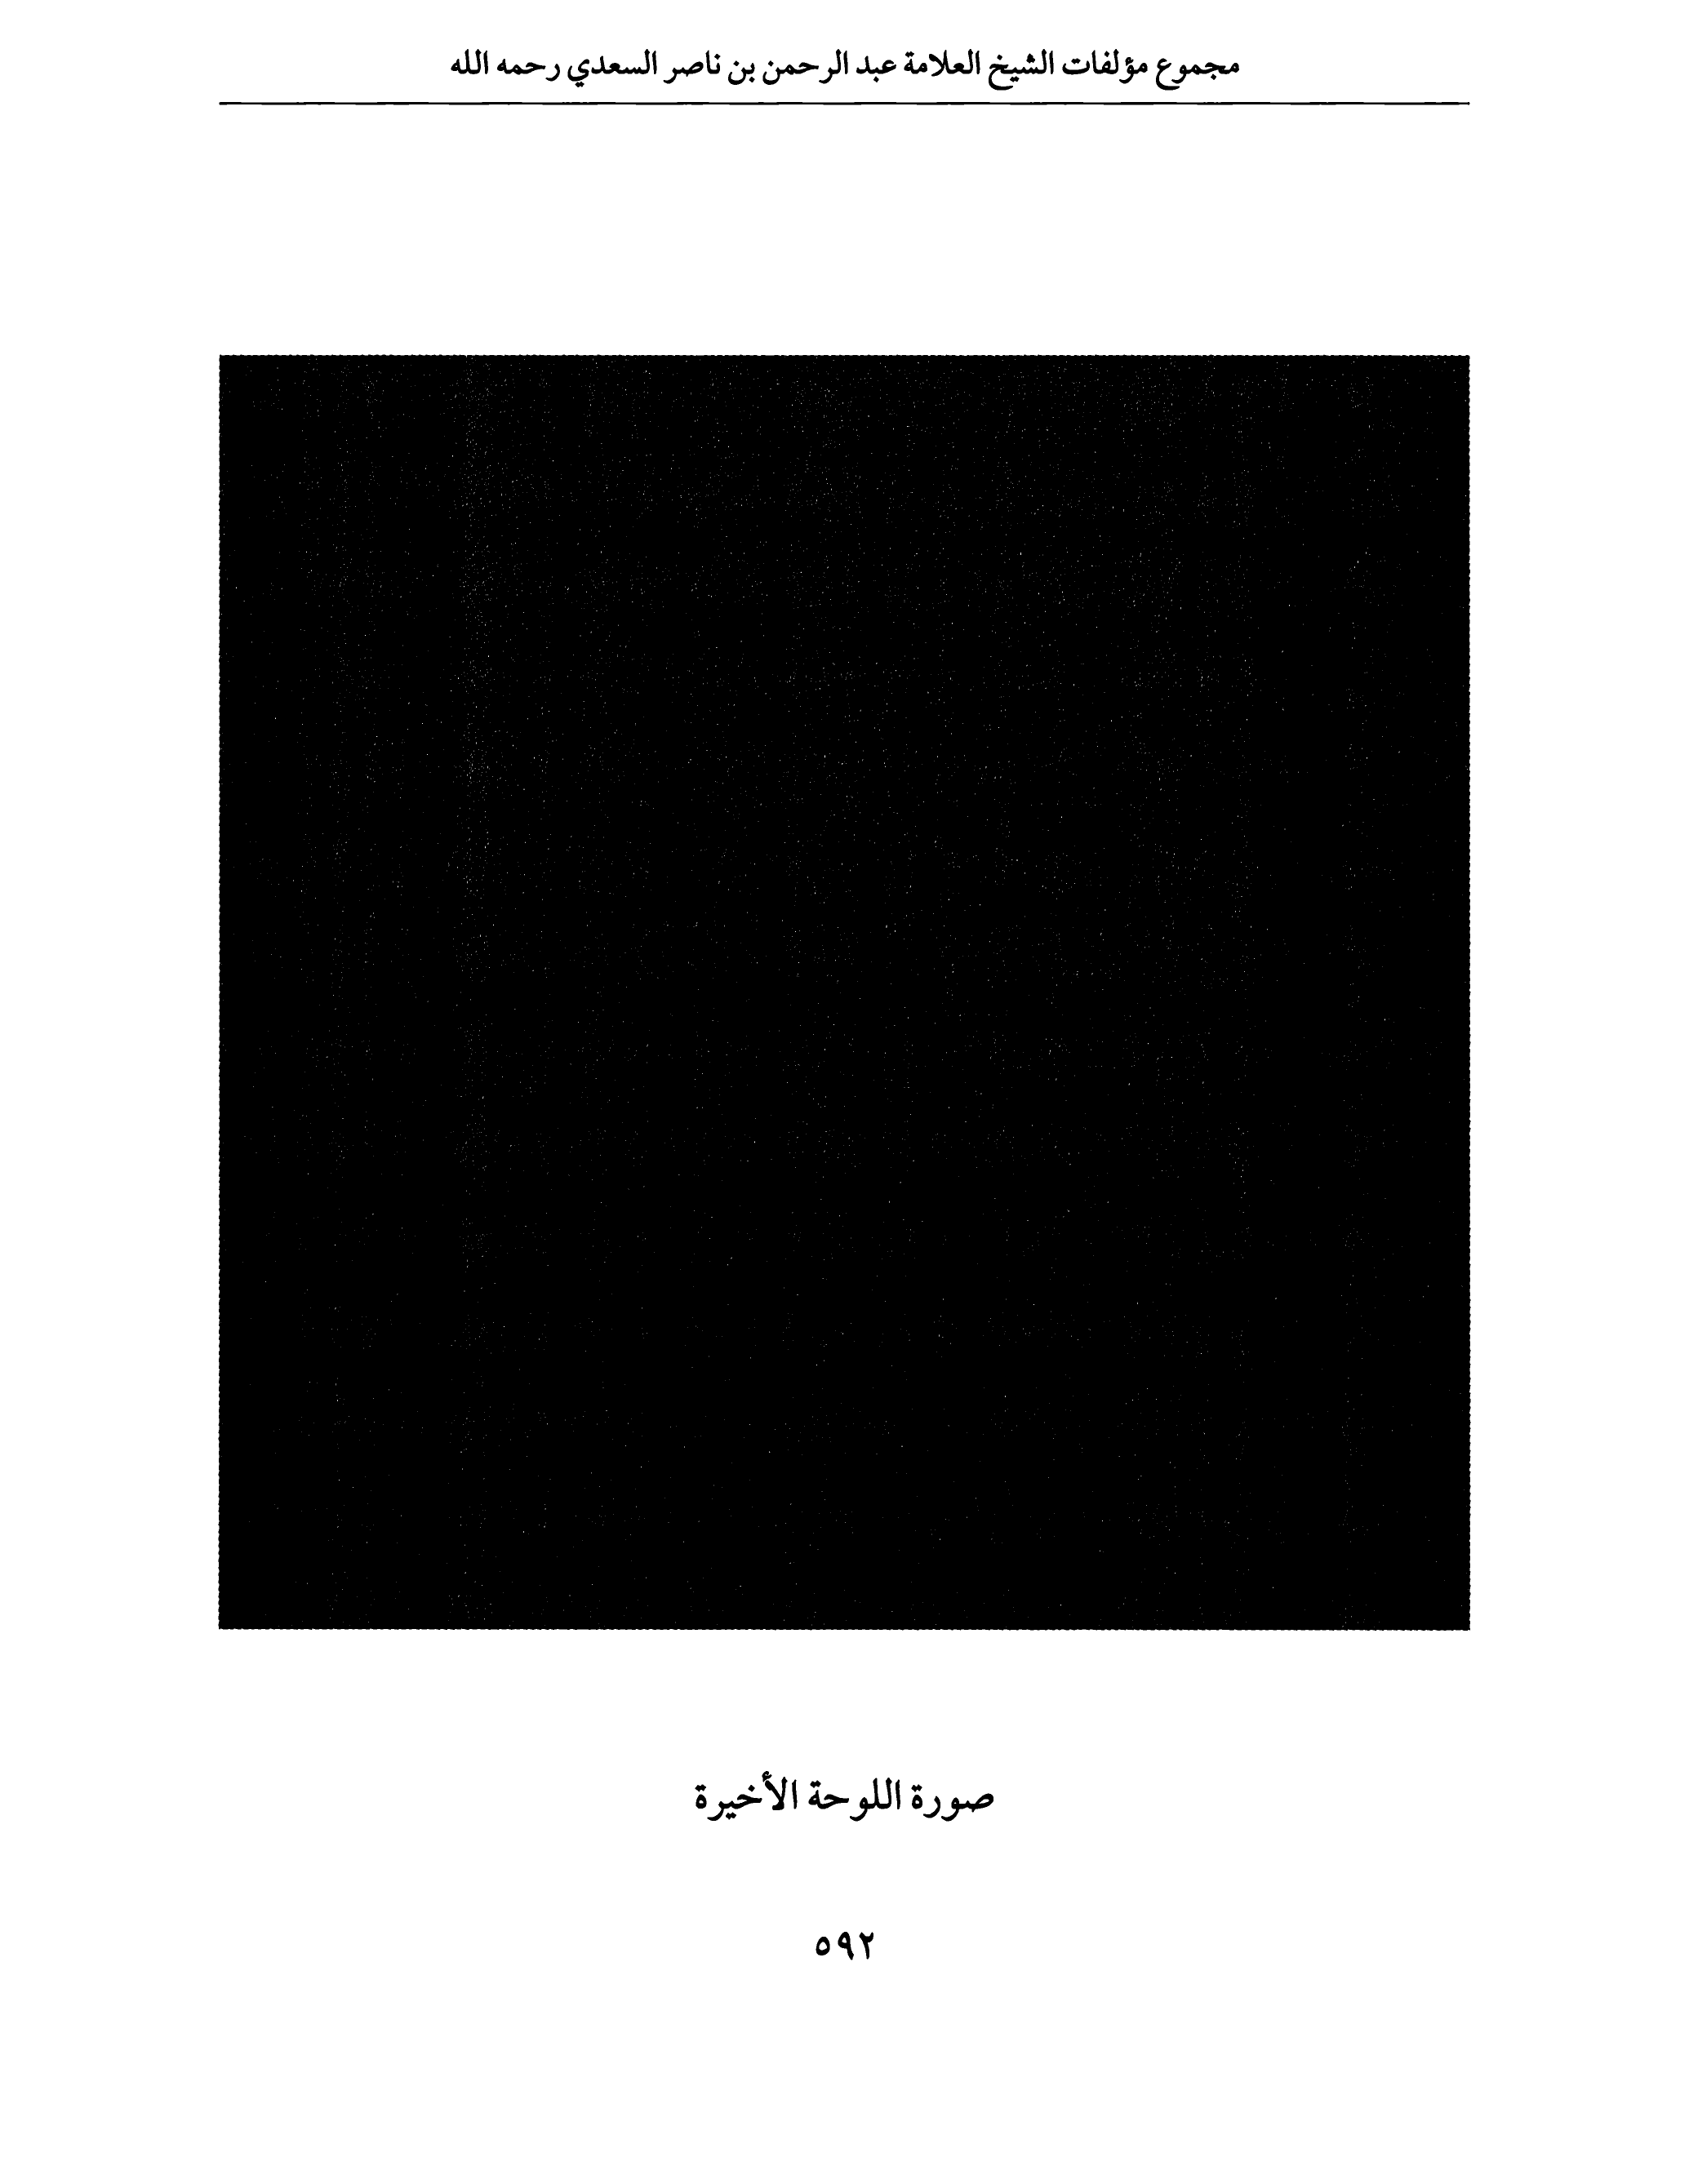 مجموع مؤلفات الشيخ العلامة عبد الرحمن بن ناصر السعدي رحمه الله
صورة اللوحة الأخيرة
٥٩٢